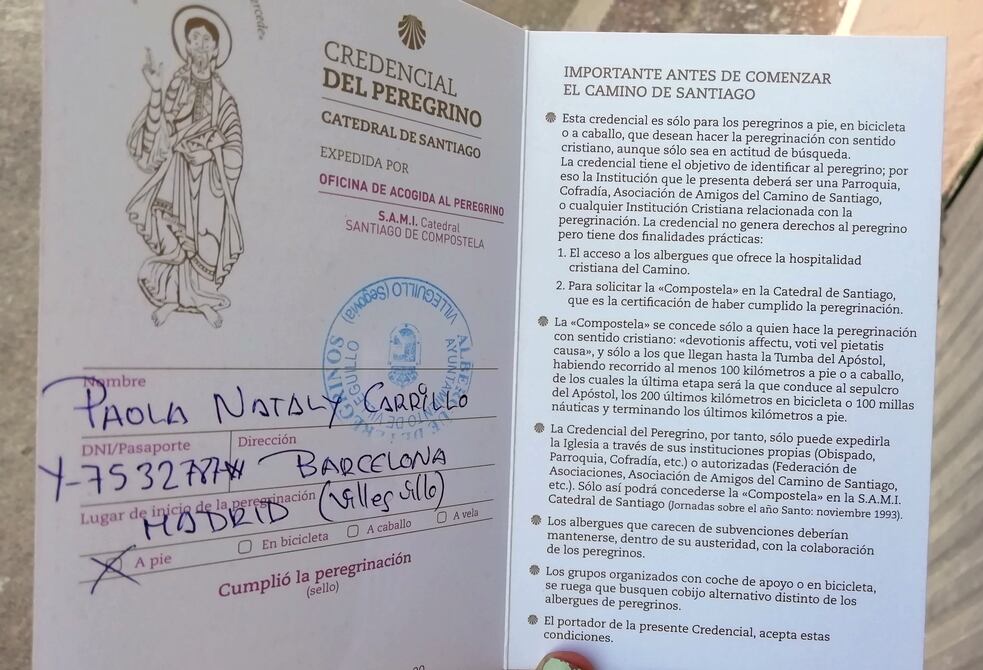 CREDENCIAL
DEL PEREGRINO
CATEDRAL DE SANTIAGO
EXPEDIDA POR
OFICINA DE ACOGIDA AL PEREGRINO
S.A.M.I. Catedral
SANTIAGO DE COMPOSTELA
VILLEGUILLO (Segovia)
AYUNTAMIENTO DE VILLEGUILLO
ALBERGUE DE PEREGRINOS
Nombre
PAOLA NATALY CARRILLO
DNI/Pasaporte
Dirección
BARCELONA
Lugar de inicio de la peregrinación
MADRID
A pie
En bicicleta
A caballo
A vela
Cumplió la peregrinación
(sello)
IMPORTANTE ANTES DE COMENZAR
EL CAMINO DE SANTIAGO
Esta credencial es sólo para los peregrinos a pie, en bicicleta
o a caballo, que desean hacer la peregrinación con sentido
cristiano, aunque sólo sea en actitud de búsqueda.
La credencial tiene el objetivo de identificar al peregrino; por
eso la Institución que le presenta deberá ser una Parroquia,
Cofradía, Asociación de Amigos del Camino de Santiago,
o cualquier Institución Cristiana relacionada con la
peregrinación. La credencial no genera derechos al peregrino
pero tiene dos finalidades prácticas:
1. El acceso a los albergues que ofrece la hospitalidad
cristiana del Camino.
2. Para solicitar la «Compostela» en la Catedral de Santiago,
que es la certificación de haber cumplido la peregrinación.
La «Compostela» se concede sólo a quien hace la peregrinación
con sentido cristiano: «devotionis affectu, voti vel pietatis
causa», y sólo a los que llegan hasta la Tumba del Apóstol,
habiendo recorrido al menos 100 kilómetros a pie o a caballo,
de los cuales la última etapa será la que conduce al sepulcro
del Apóstol, los 200 últimos kilómetros en bicicleta o 100 millas
náuticas y terminando los últimos kilómetros a pie.
La Credencial del Peregrino, por tanto, sólo puede expedirla
la Iglesia a través de sus instituciones propias (Obispado,
Parroquia, Cofradía, etc.) o autorizadas (Federación de
Asociaciones, Asociación de Amigos del Camino de Santiago,
etc.). Sólo así podrá concederse la «Compostela» en la S.A.M.I.
Catedral de Santiago (Jornadas sobre el año Santo: noviembre 1993).
Los albergues que carecen de subvenciones deberían
mantenerse, dentro de su austeridad, con la colaboración
de los peregrinos.
Los grupos organizados con coche de apoyo o en bicicleta,
se ruega que busquen cobijo alternativo distinto de los
albergues de peregrinos.
El portador de la presente Credencial, acepta estas
condiciones.